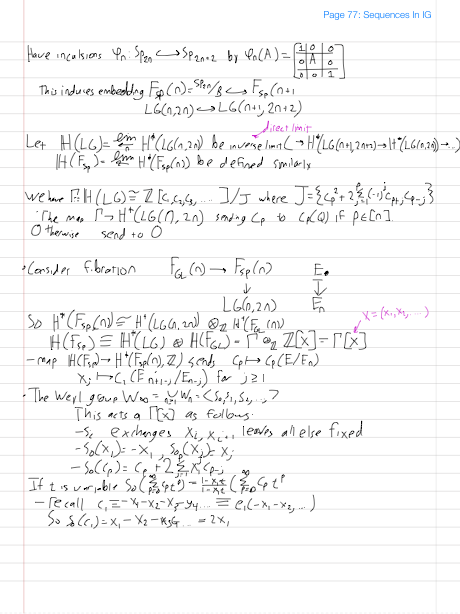 Page 77: Sequences In IG
Have incalsions φn: Sp2n ↪ Sp2n+2 by φn(A) = [1 0 0 / 0 A 0 / 0 0 1]
This induces embedding FSp(n) = Sp2n/B ↪ FSp(n+1
LG(n,2n) ↪ LG(n+1, 2n+2)
direct limit
Let ℍ(LG) = lim H*(LG(n,2n) be inverse limit (→ H*(LG(n+1,2n+2) → H*(LG(n,2n) → ...)
ℍ(FSp) = lim H*(FSp(n)) be defined similarly
We have Γ: ℍ(LG) ≅ ℤ[c1,c2,c3, ....]/J where J = {cp² + 2 Σ (-1)^j cp+j cp-j}
The map Γ → H*(LG(n, 2n) sending cp to cp(Q) if p∈[n].
Otherwise send to 0
• Consider fibration FGL(n) → FSp(n) E•
↓ ↓
LG(n,2n) En
So H*(FSp(n)) ≅ H*(LG(n,2n)) ⊗ℤ H*(FGL(n))
x = (x1, x2, ...)
ℍ(FSp) ≅ ℍ(LG) ⊗ ℍ(FGL) = Γ ⊗ℤ ℤ[x] = Γ[x]
- map ℍ(FSp) → H*(FSp(n), ℤ) sends cp ↦ cp(E/En)
xj ↦ c1(En+1-j/En-j) for j≥1
• The Weyl group W∞ = ∪ Wn = <s0, s1, s2, ...>
This acts a Γ[x] as follows.
- si exchanges xi, xi+1 leaves all else fixed
- s0(x1) = -x1, s0(xj) = xj
- s0(cp) = cp + 2 Σ x1^j cp-j
If t is variable s0(Σ cp t^p) = 1+x1t/1-x1t (Σ cp t^p
- recall c1 = -x1-x2-x3-x4.... = e1(-x1-x2, ...)
So s0(c1) = x1 - x2 - x3 ... = 2x1